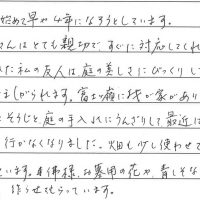 始めて早や4年になろうとしています。
さんはとても親切で、すぐに対応してくれ
た私の友人は庭の美しさにびっくりし
しがられます。富士嶺に我が家があり
とそうじと庭の手入れにうんざりして最近は
行かなくなりました。畑も少し使わせて
います。仏様、お墓用の花や、青しそな
作らせてもらっています。